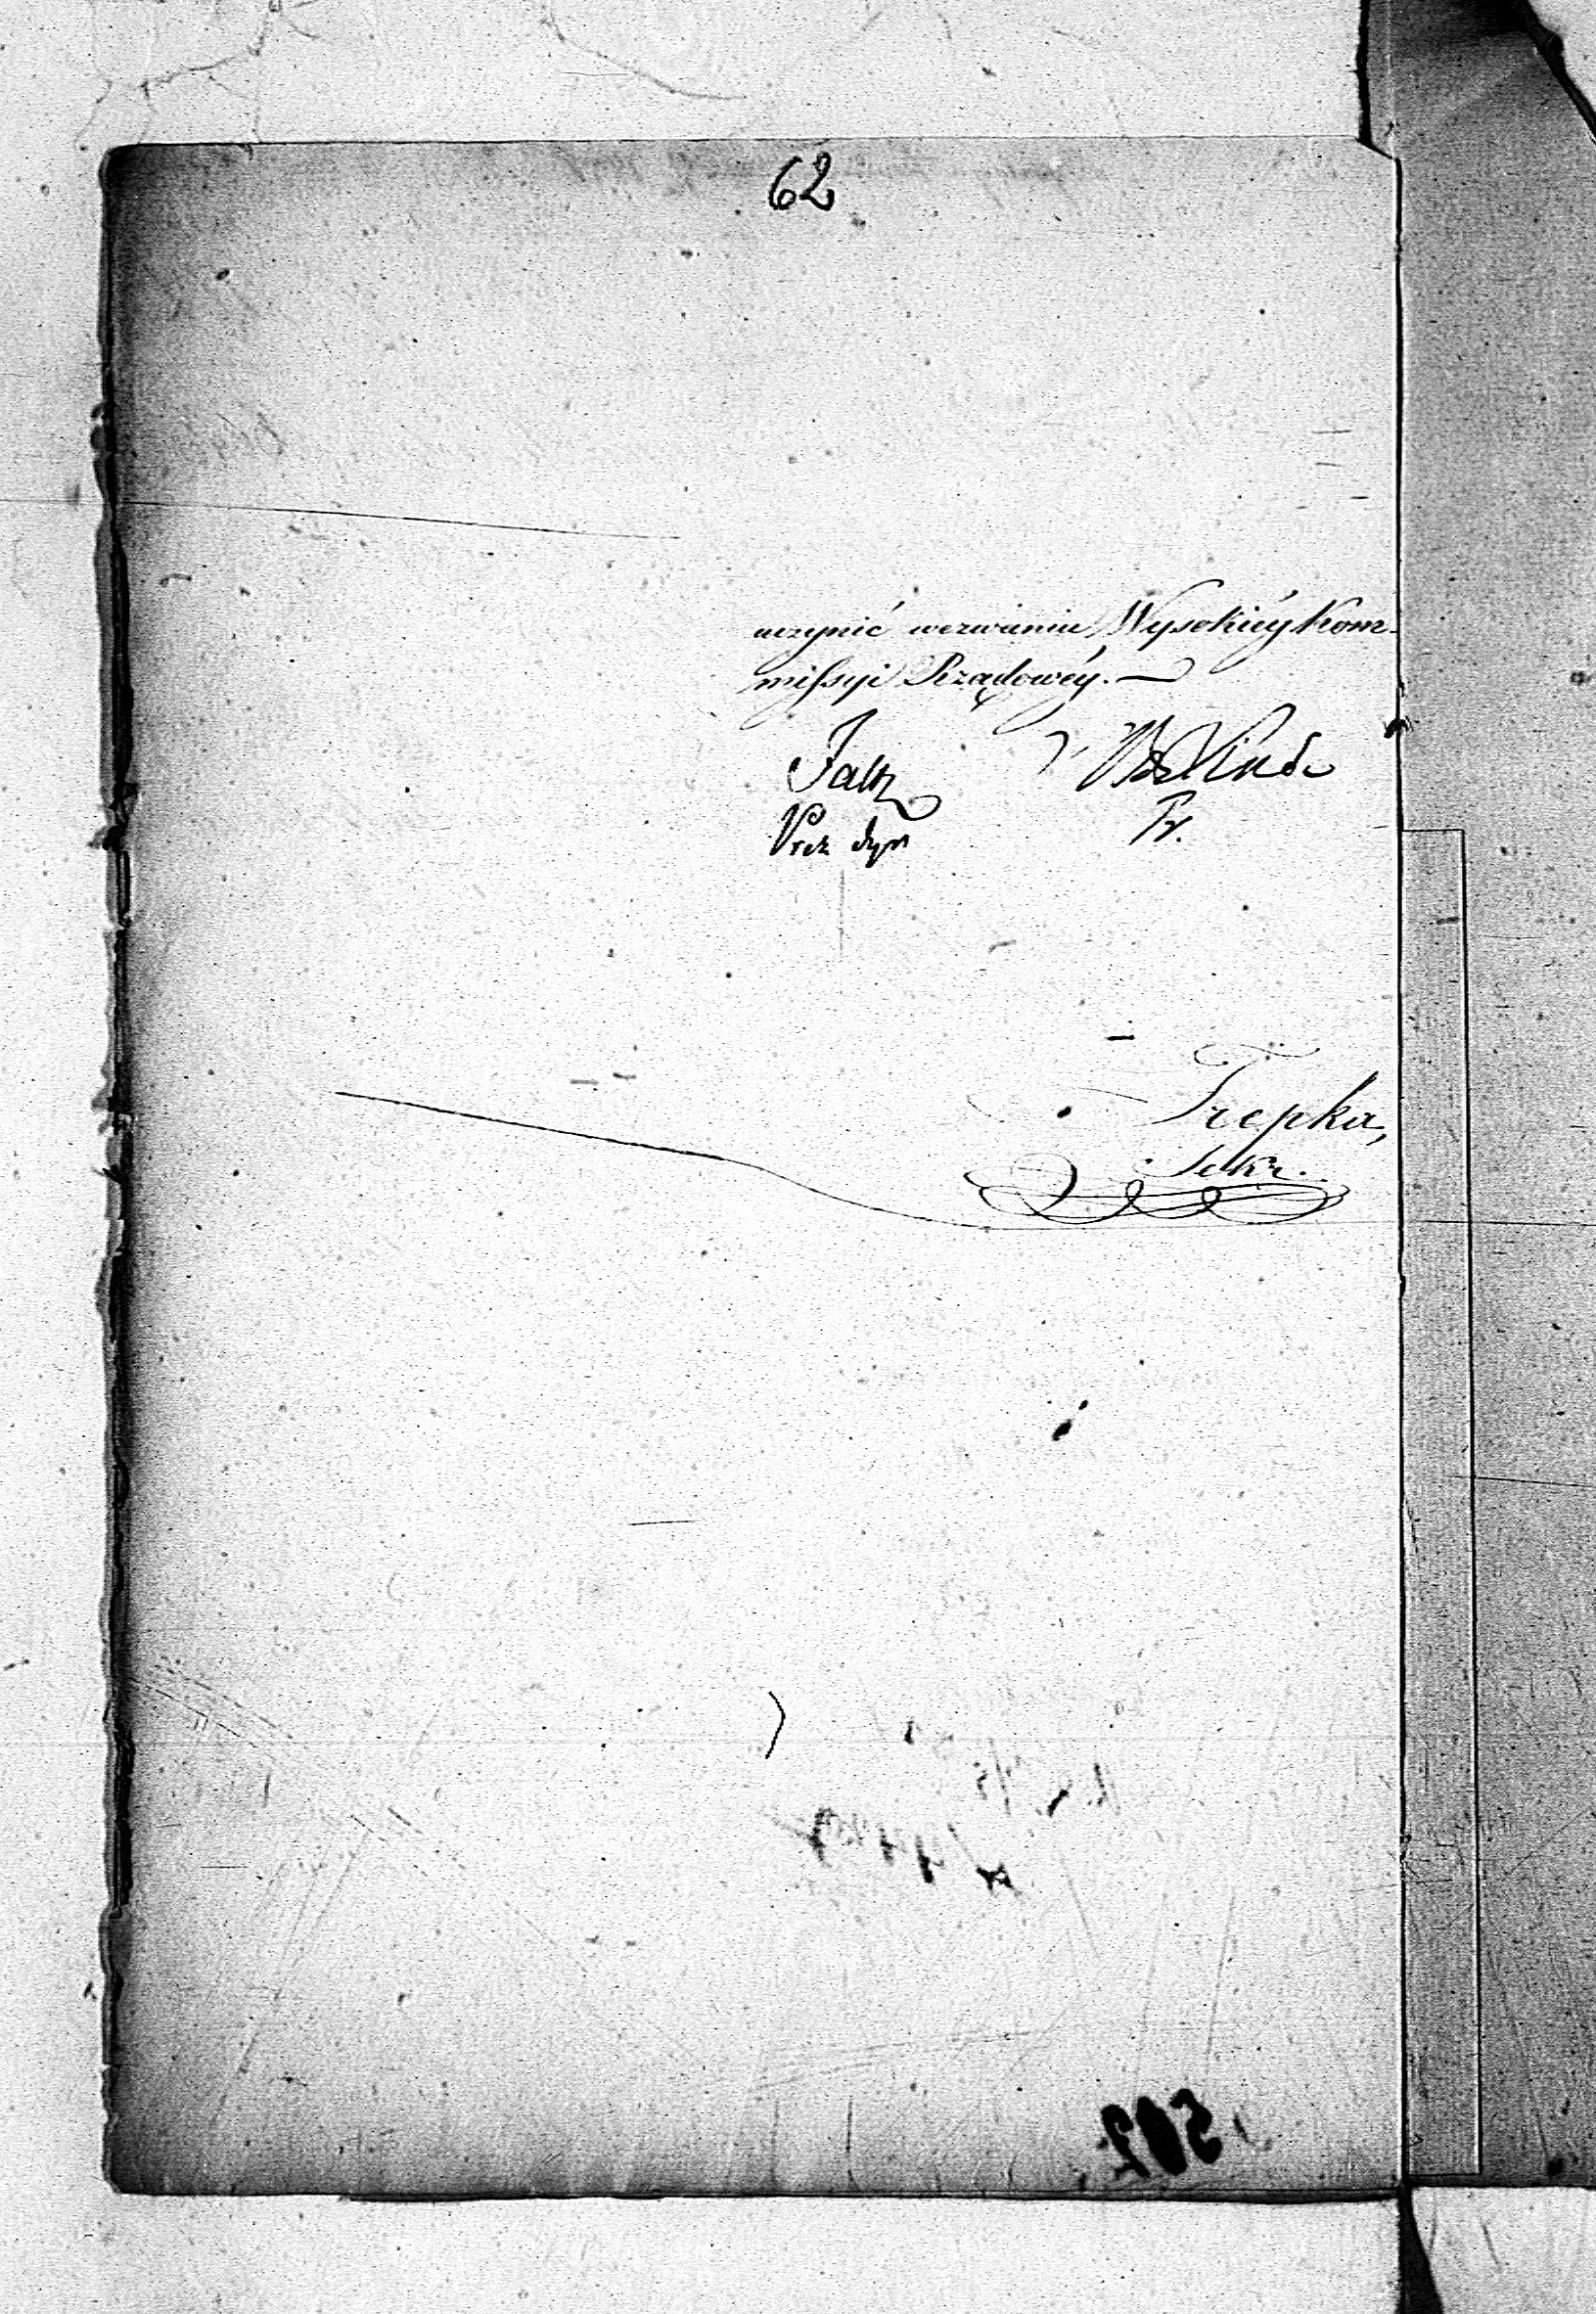 62
uczynić wezwaniu Wysokiéy Kom-
missyi Rządowéy. —
Falz
Prez dyr
Pr.
Trepka,
Sekr.